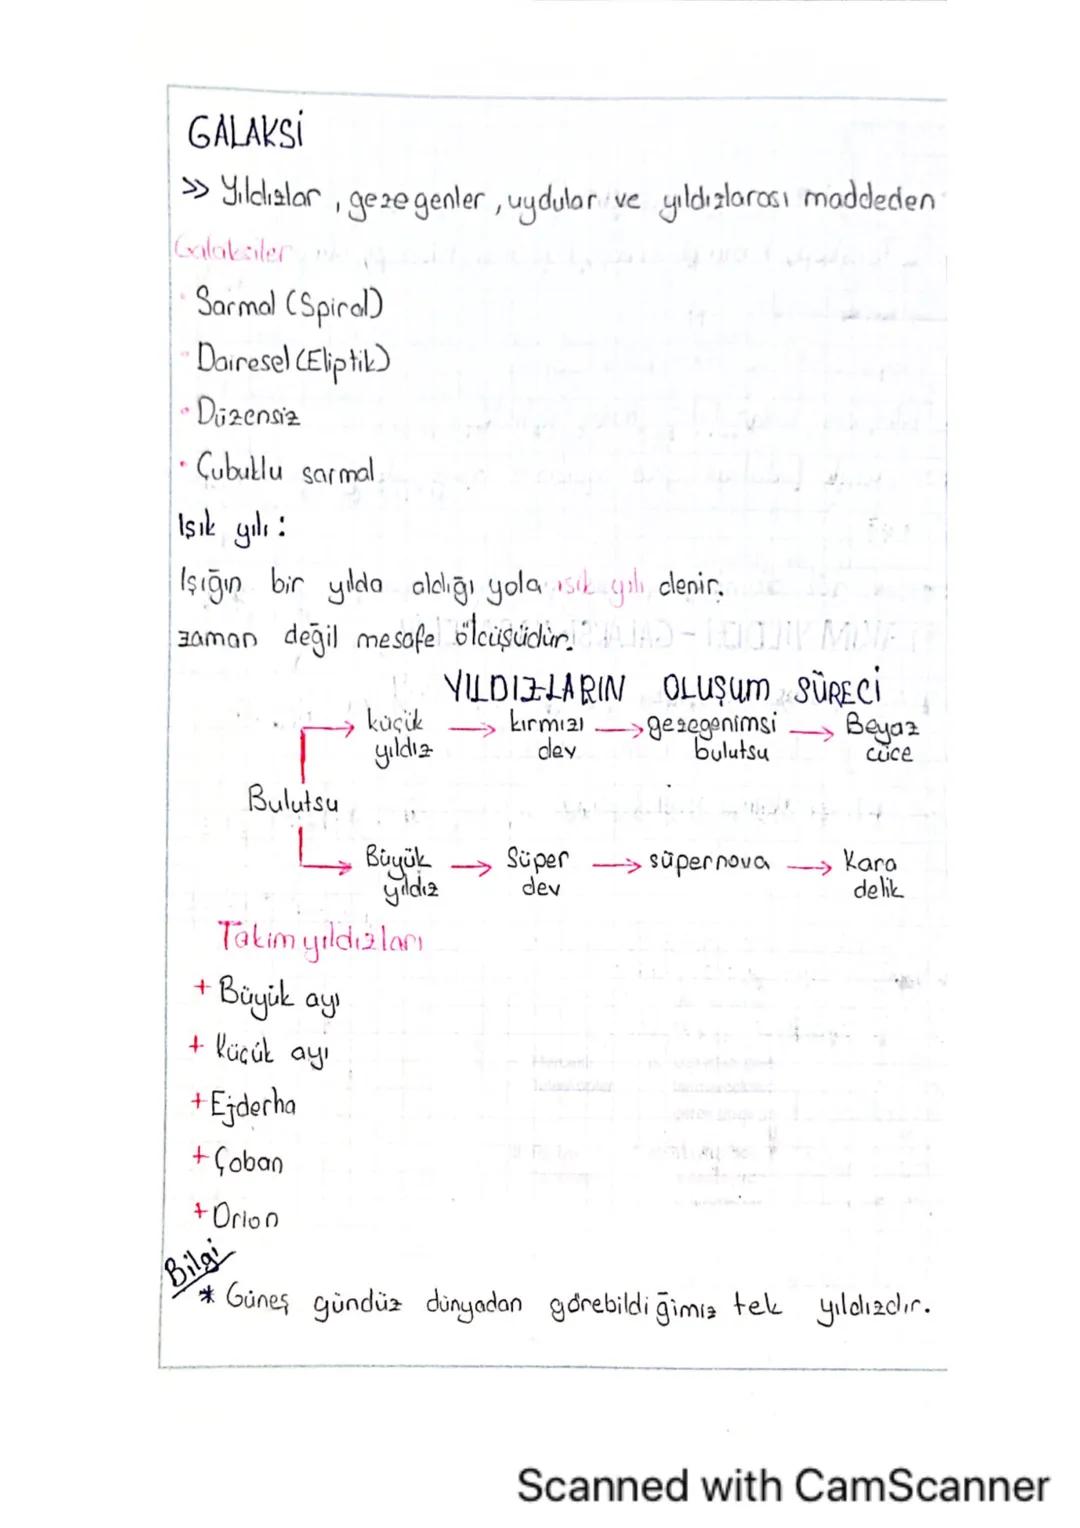 GALAKSİ
>> Yıldızlar, gezegenler, uydular ve yıldızlarası maddeden
Galaksiler
• Sarmal (Spiral)
• Dairesel (Eliptik)
• Düzensiz
• Çubuklu sarmal
Işık yılı :
Işığın bir yılda aldığı yola ışık yılı denir.
zaman değil mesafe ölçüşüdür.
YILDIZLARIN OLUŞUM SÜRECİ
küçük yıldız → kırmızı dev → gezegenimsi bulutsu → Beyaz cüce
Bulutsu
Büyük yıldız → Süper dev → süpernova → Kara delik
Takım yıldızları
+ Büyük ayı
+ Küçük ayı
+ Ejderha
+ Çoban
+ Orion
Bilgi
* Güneş gündüz dünyadan görebildiğimiz tek yıldızdır.
Scanned with CamScanner